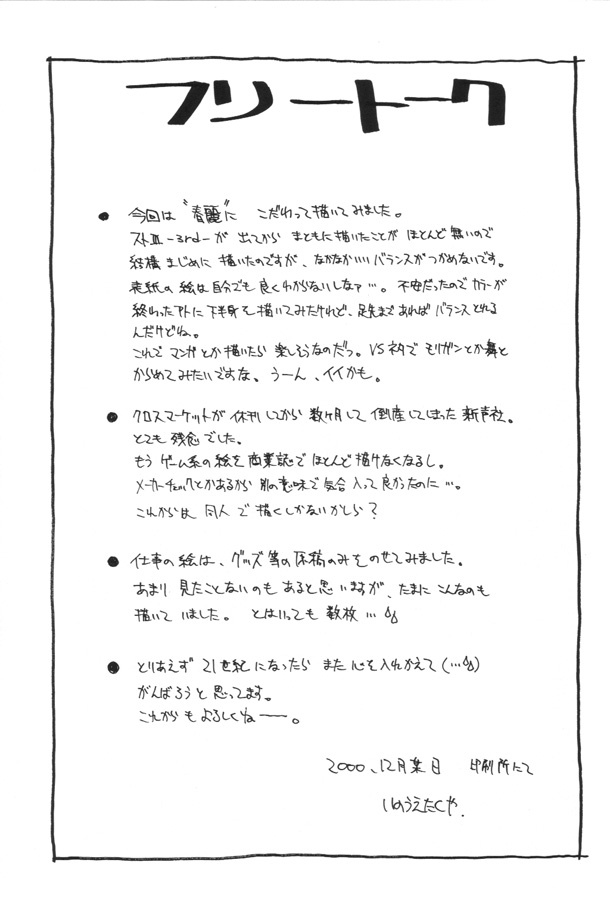 フリートーク
● 今回は“春麗”に こだわって描いてみました。
ストⅢ-3rd-が 出てから まともに描いたことが ほとんど無いので
結構まじめに 描いたのですが、なかなかいいバランスがつかめないです。
表紙の絵は自分でも良くわからないしなァ…。不安だったのでカラーが
終わったアトに下半身を描いてみたけれど、足先まであればバランスとれる
んだけどね。
これで マンガとか描いたら 楽しそうなのだっ。VSネタで モリガンとか舞と
からめてみたいですな、うーん、イイかも。
● クロスマーケットが 休刊してから 数ヶ月して 倒産してしまった 新声社。
とても 残念でした。
もう ゲーム系の絵を商業誌で ほとんど描けなくなるし。
メーカーチェックとかあるから 別の意味で気合入って良かったのに…。
これからは 同人で 描くしかないかしら?
● 仕事の絵は、グッズ等の原稿のみをのせてみました。
あまり 見たことないのも あると思いますが、たまに こんなのも
描いていました。 とはいっても 数枚…
● とりあえず 21世紀になったら また心を入れかえて(…)
がんばろうと思ってます。
これからも よろしくねー。
2000、12月某日 印刷所にて
いのうえたくや.